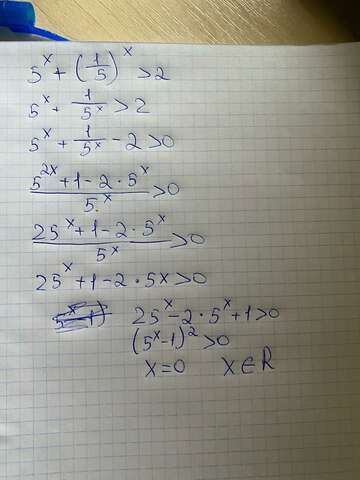 5^x + (1/5)^x > 2
5^x + 1/5^x > 2
5^x + 1/5^x - 2 > 0
(5^{2x} + 1 - 2 · 5^x)/5^x > 0
(25^x + 1 - 2 · 5^x)/5^x > 0
25^x + 1 - 2 · 5x > 0
25^x - 2 · 5^x + 1 > 0
(5^x - 1)^2 > 0
x = 0 x ∈ R